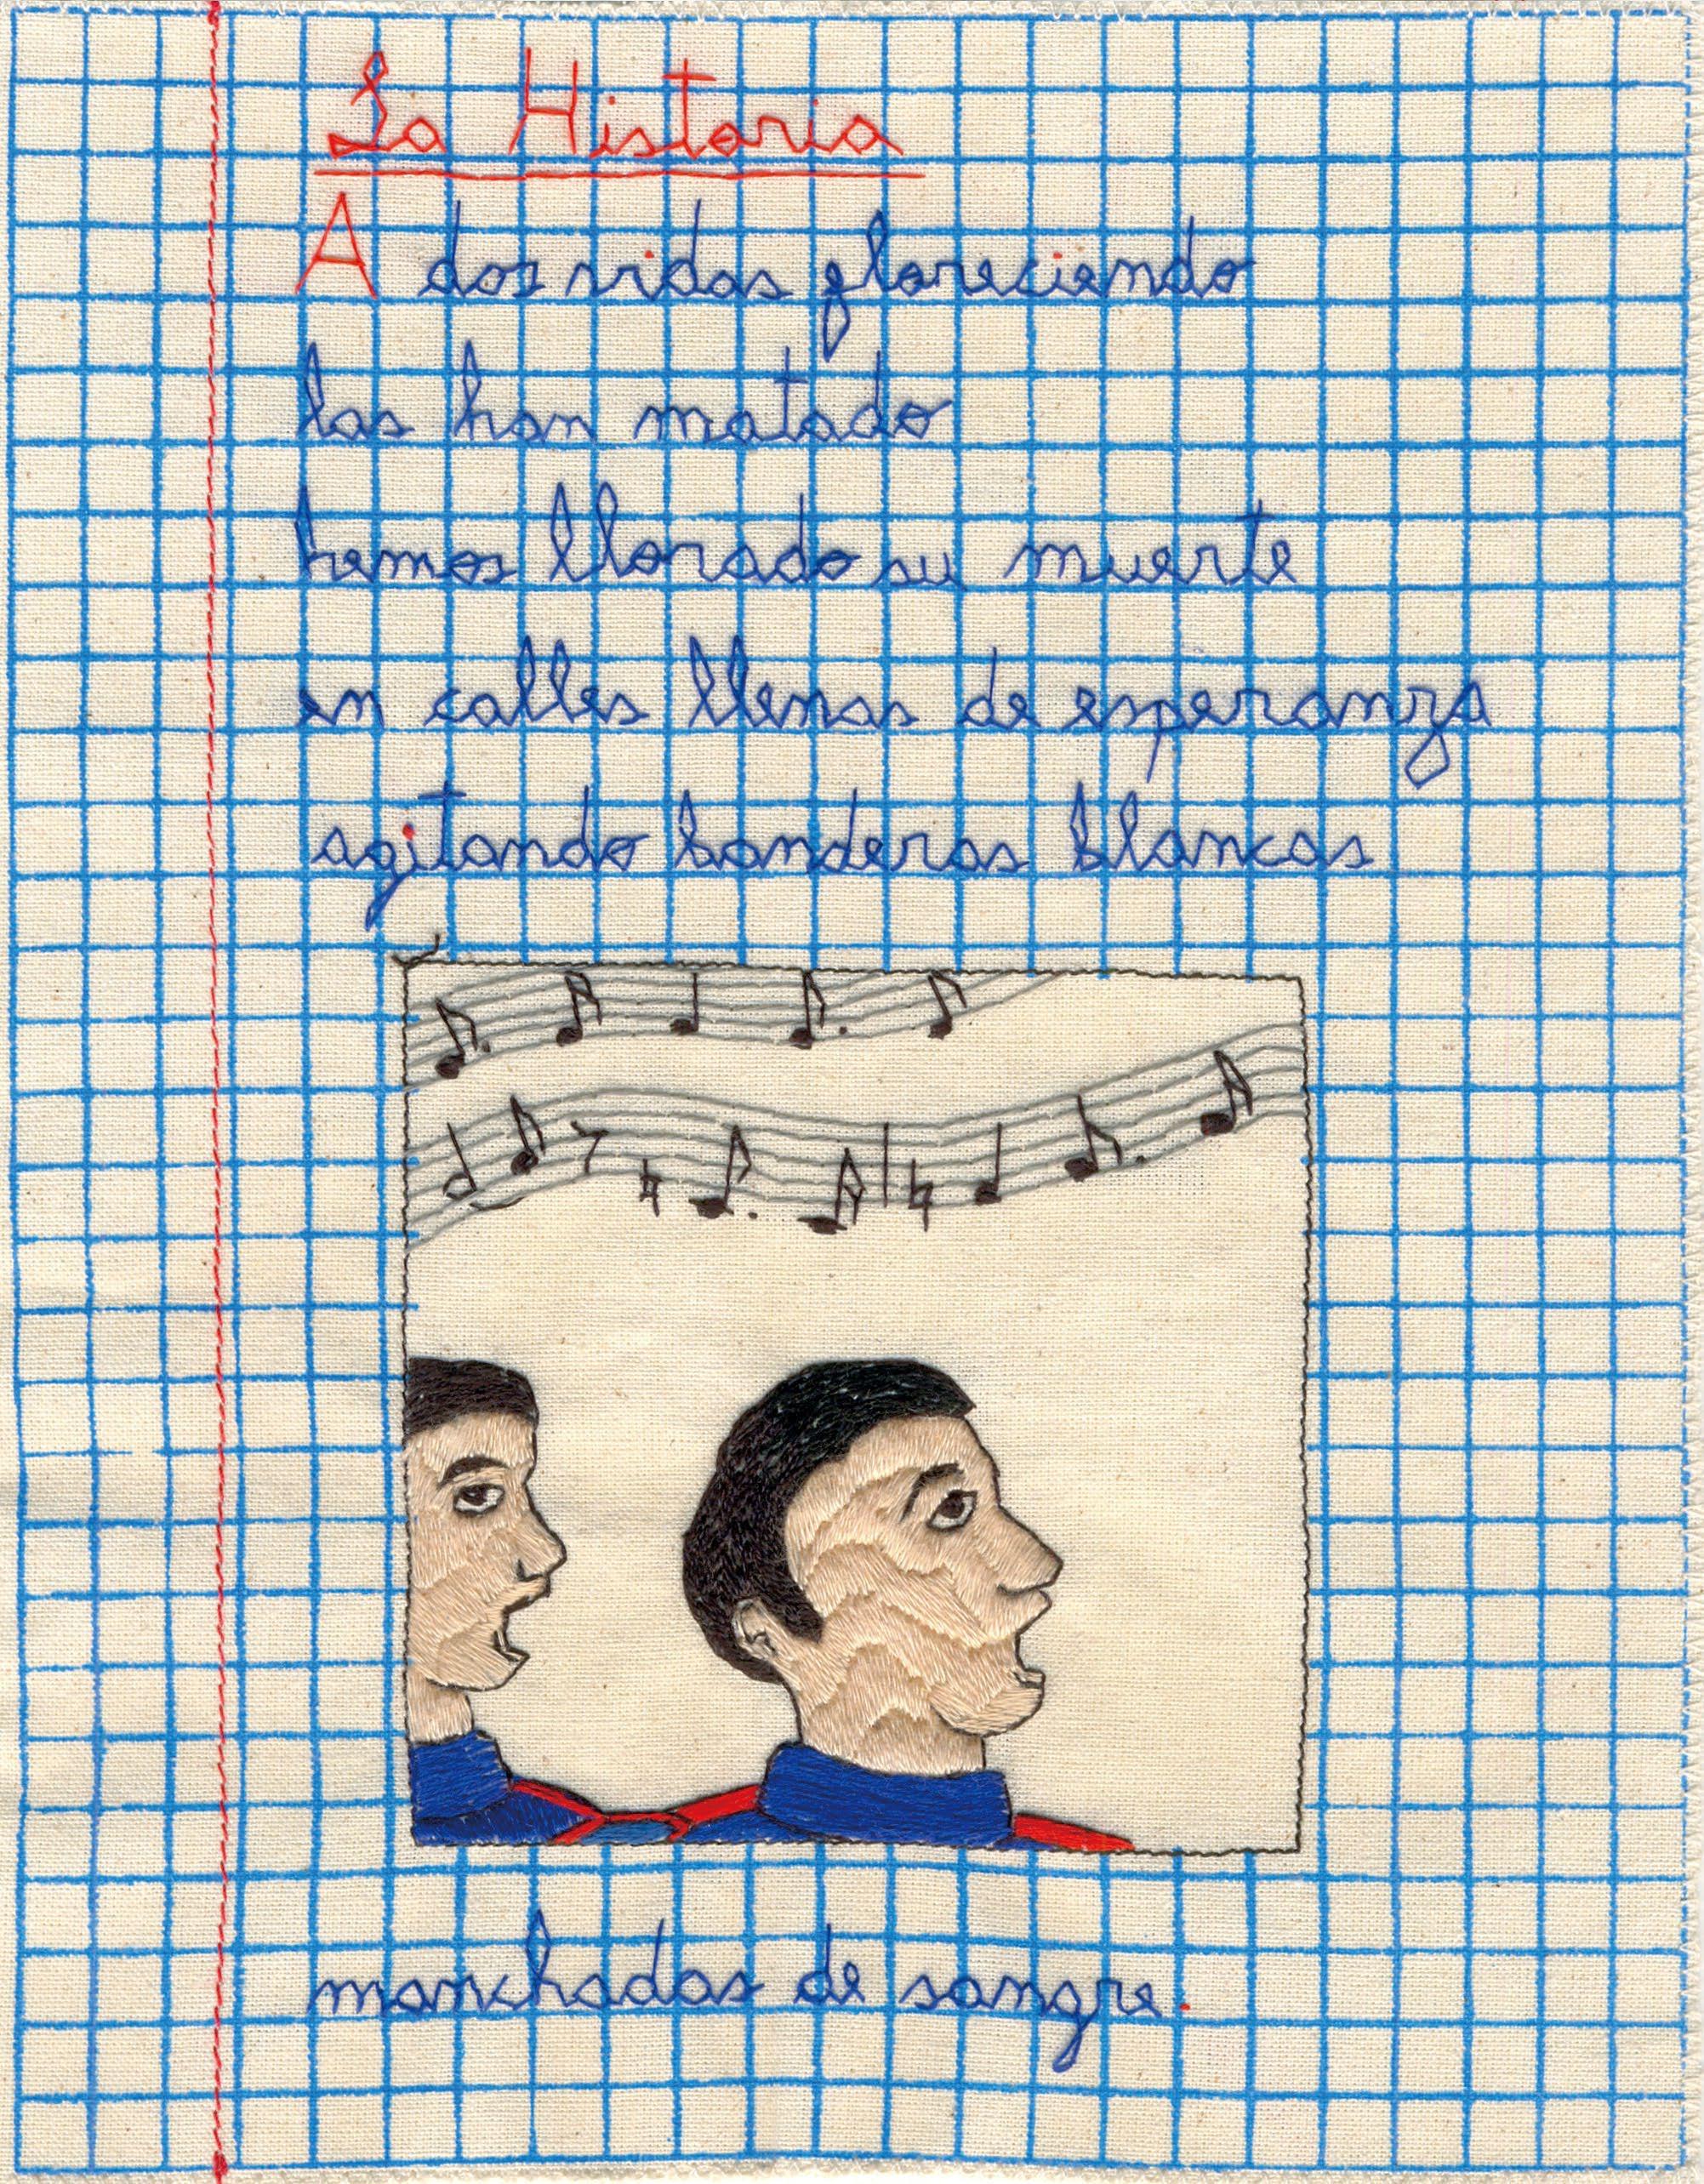 La Historia
A dos vidas floreciendo
las han matado
hemos llorado su muerte
en calles llenas de esperanza
agitando banderas blancas
manchadas de sangre.